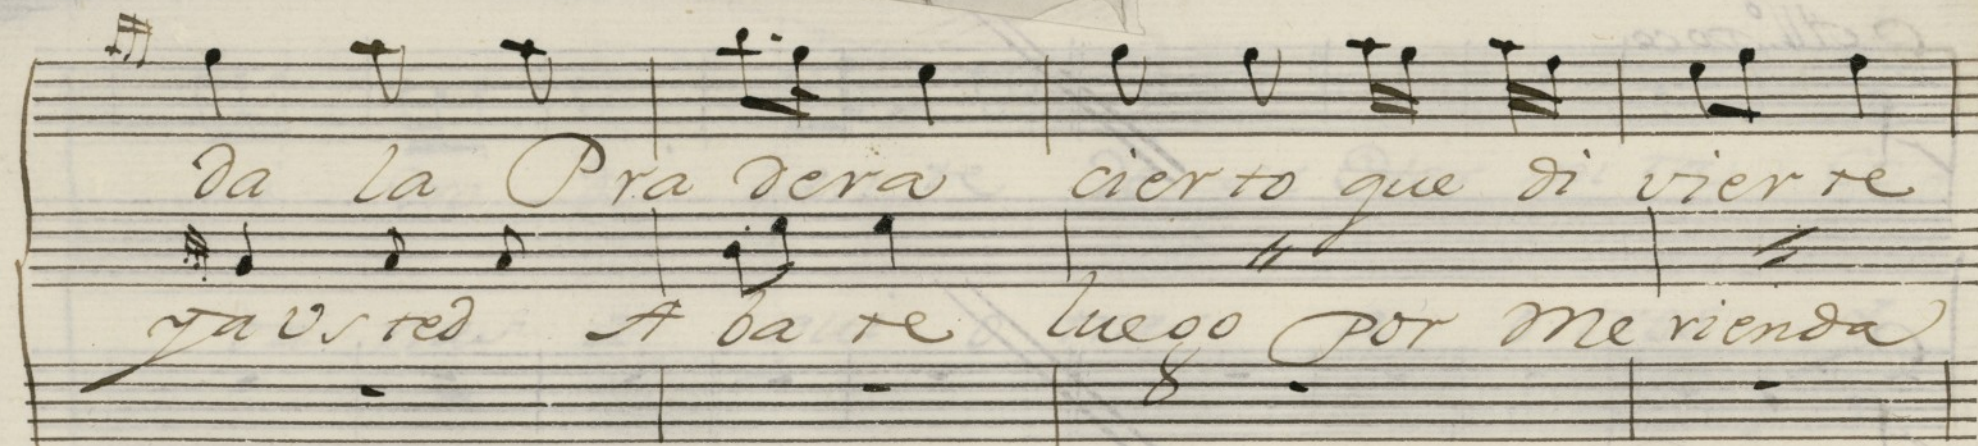 da la Pra dera cierto que di vierte
ya Vsted A ba te luego por Me rienda